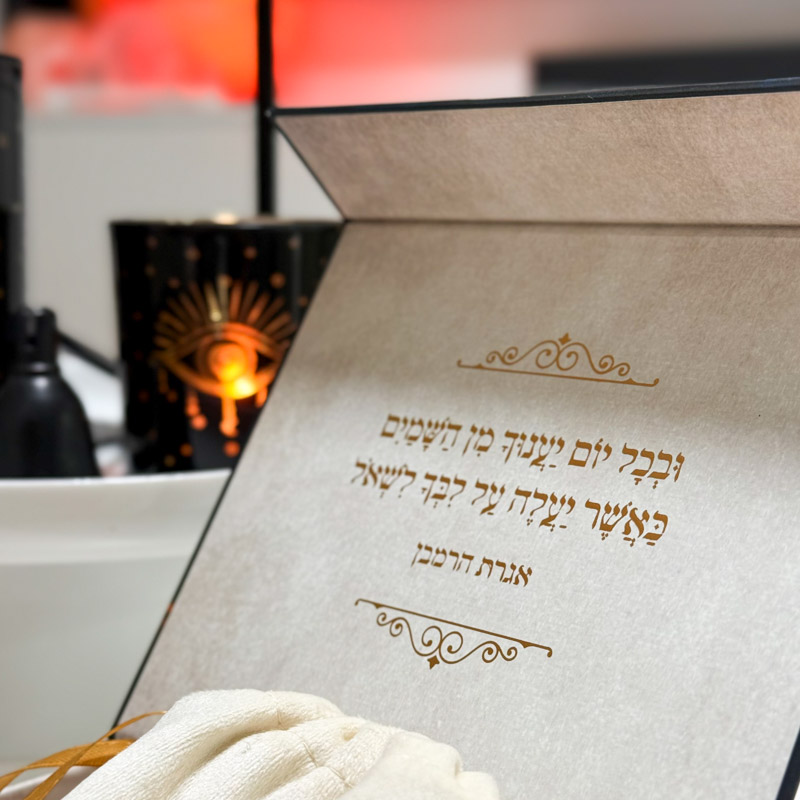 וּבְכָל יוֹם יַעֲנוּךָ מִן הַשָּׁמַיִם
כַּאֲשֶׁר יַעֲלֶה עַל לִבְּךָ לִשְׁאֹל
אגרת הרמבן